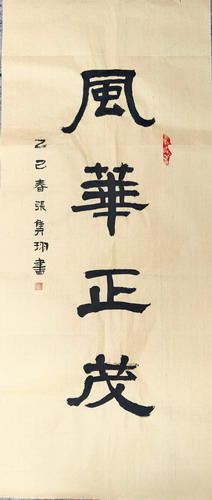 風華正茂
乙巳春張隽珊書